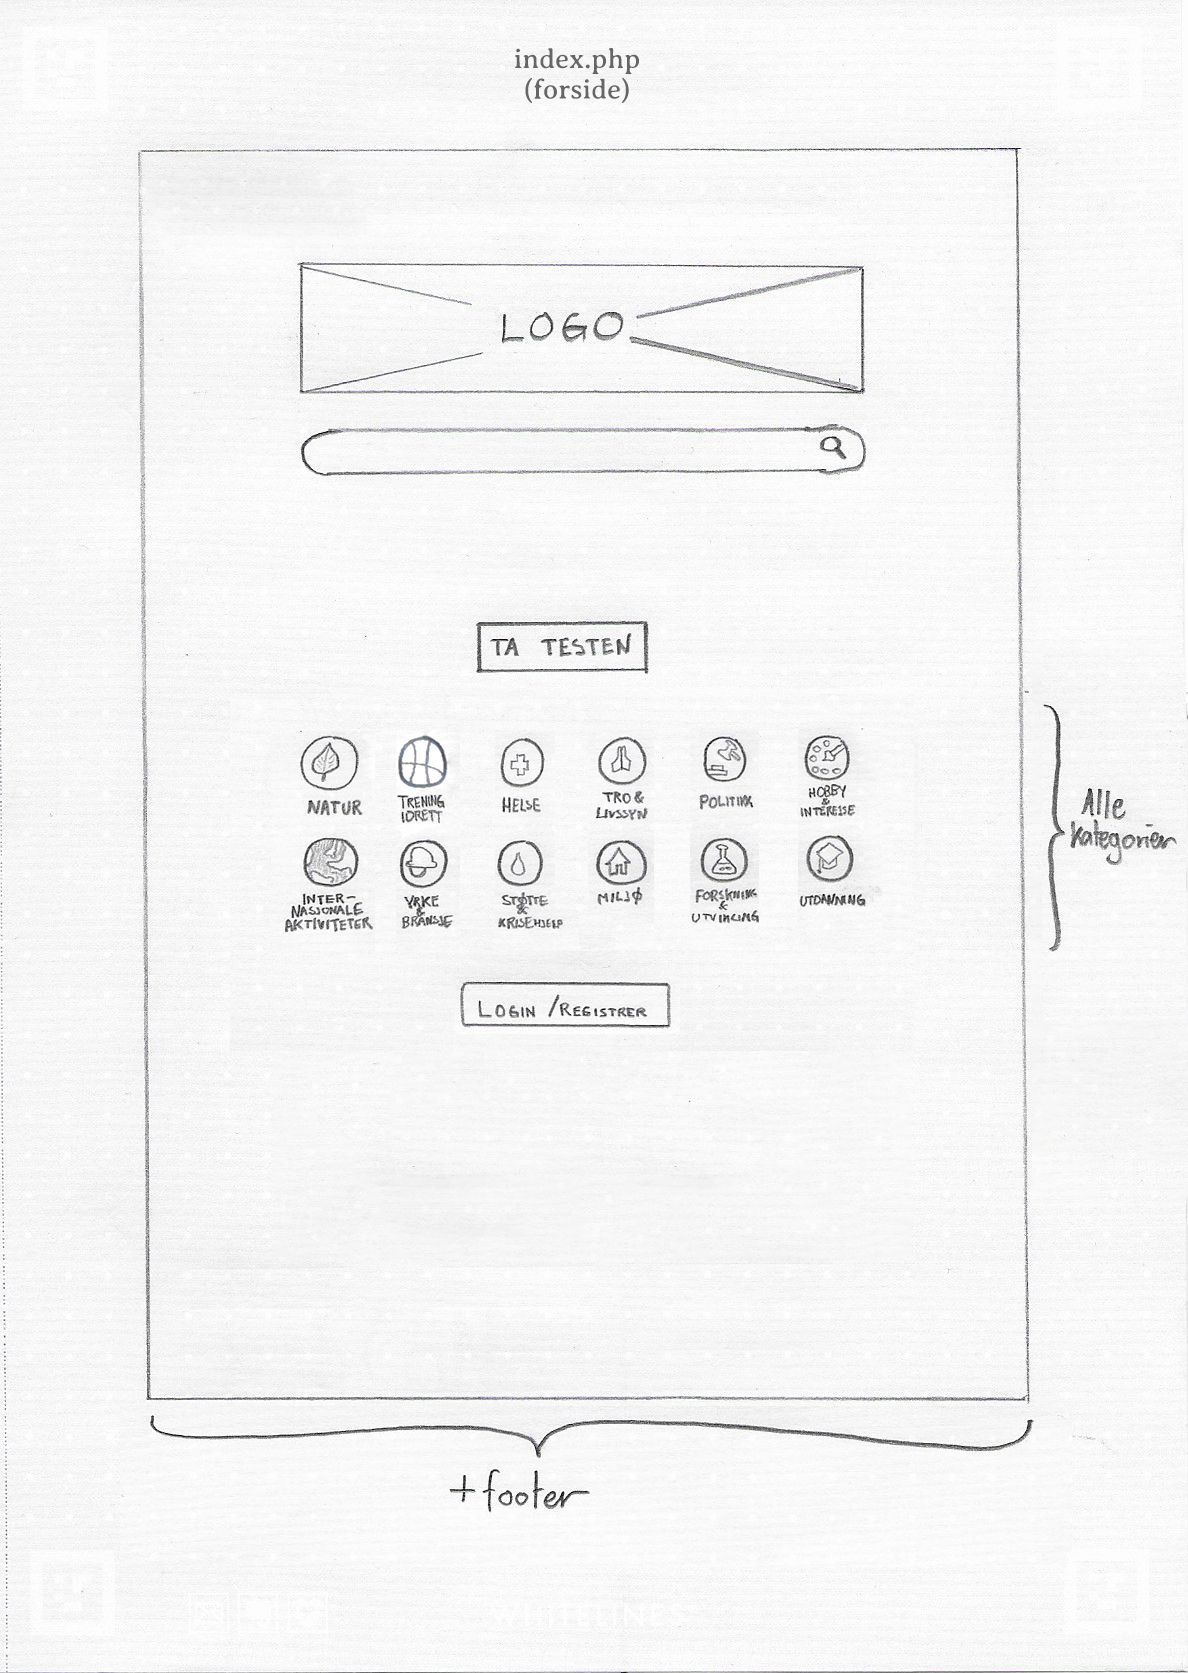 index.php
(forside)
LOGO
TA TESTEN
NATUR
TRENING
IDRETT
HELSE
TRO &
LIVSSYN
POLITIKK
HOBBY
&
INTERESSE
INTER-
NASJONALE
AKTIVITETER
YRKE
&
BRANSJE
STØTTE
&
KRISEHJELP
MILJØ
FORSKNING
&
UTVIKLING
UTDANNING
Alle
kategorier
LOGIN / REGISTRER
+ footer
WHITELINES